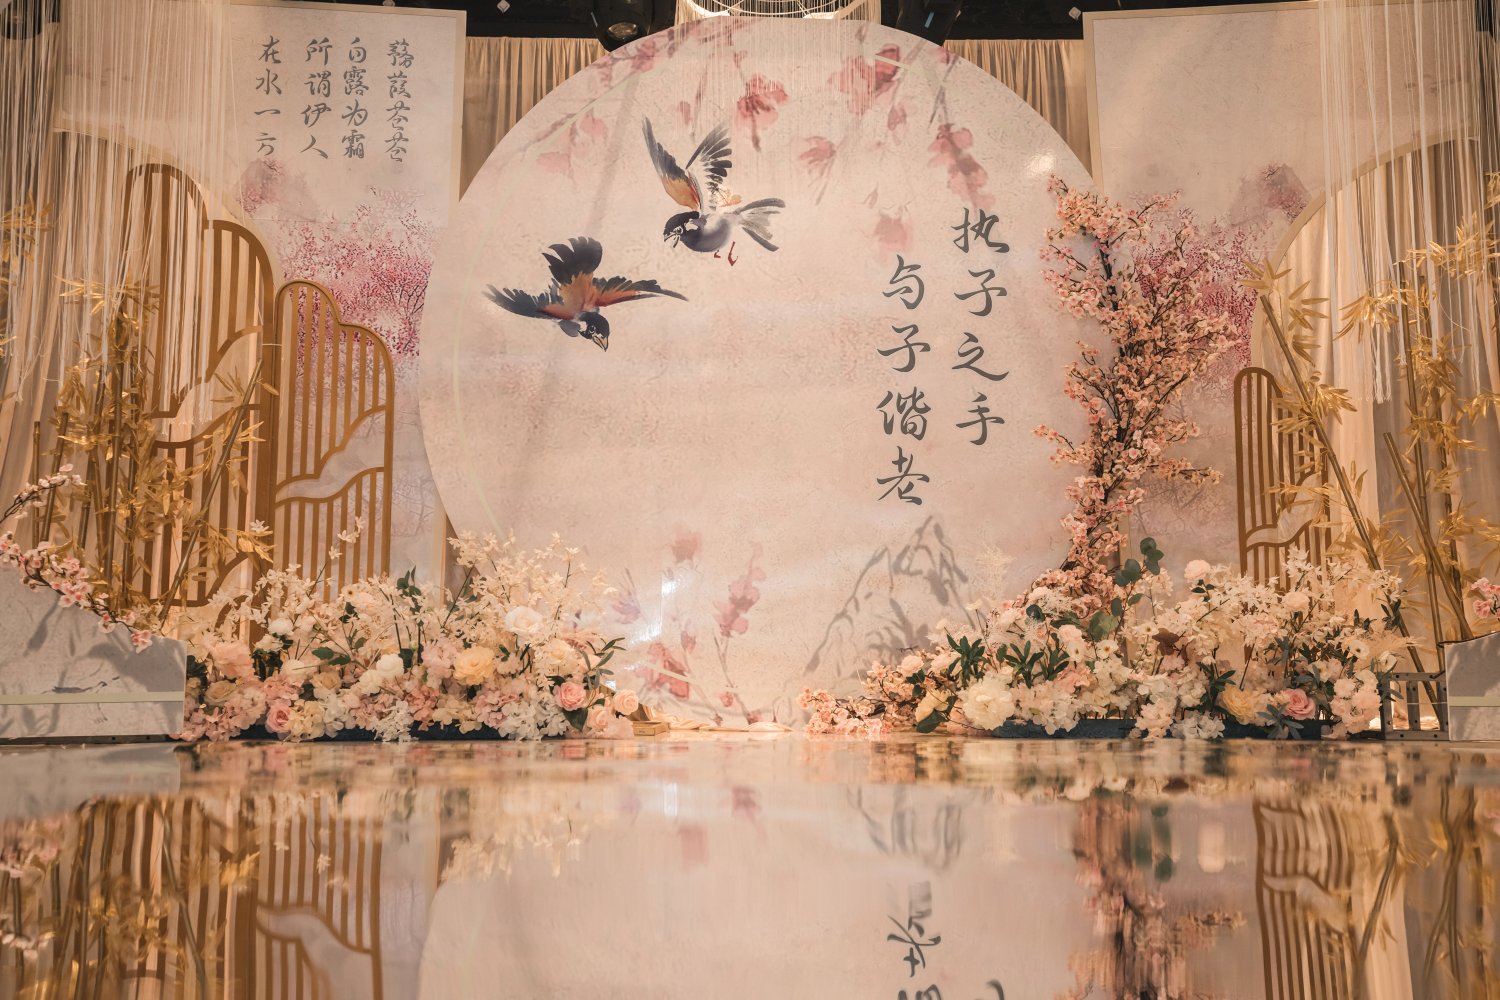 执子之手
与子偕老
蒹葭苍苍
白露为霜
所谓伊人
在水一方